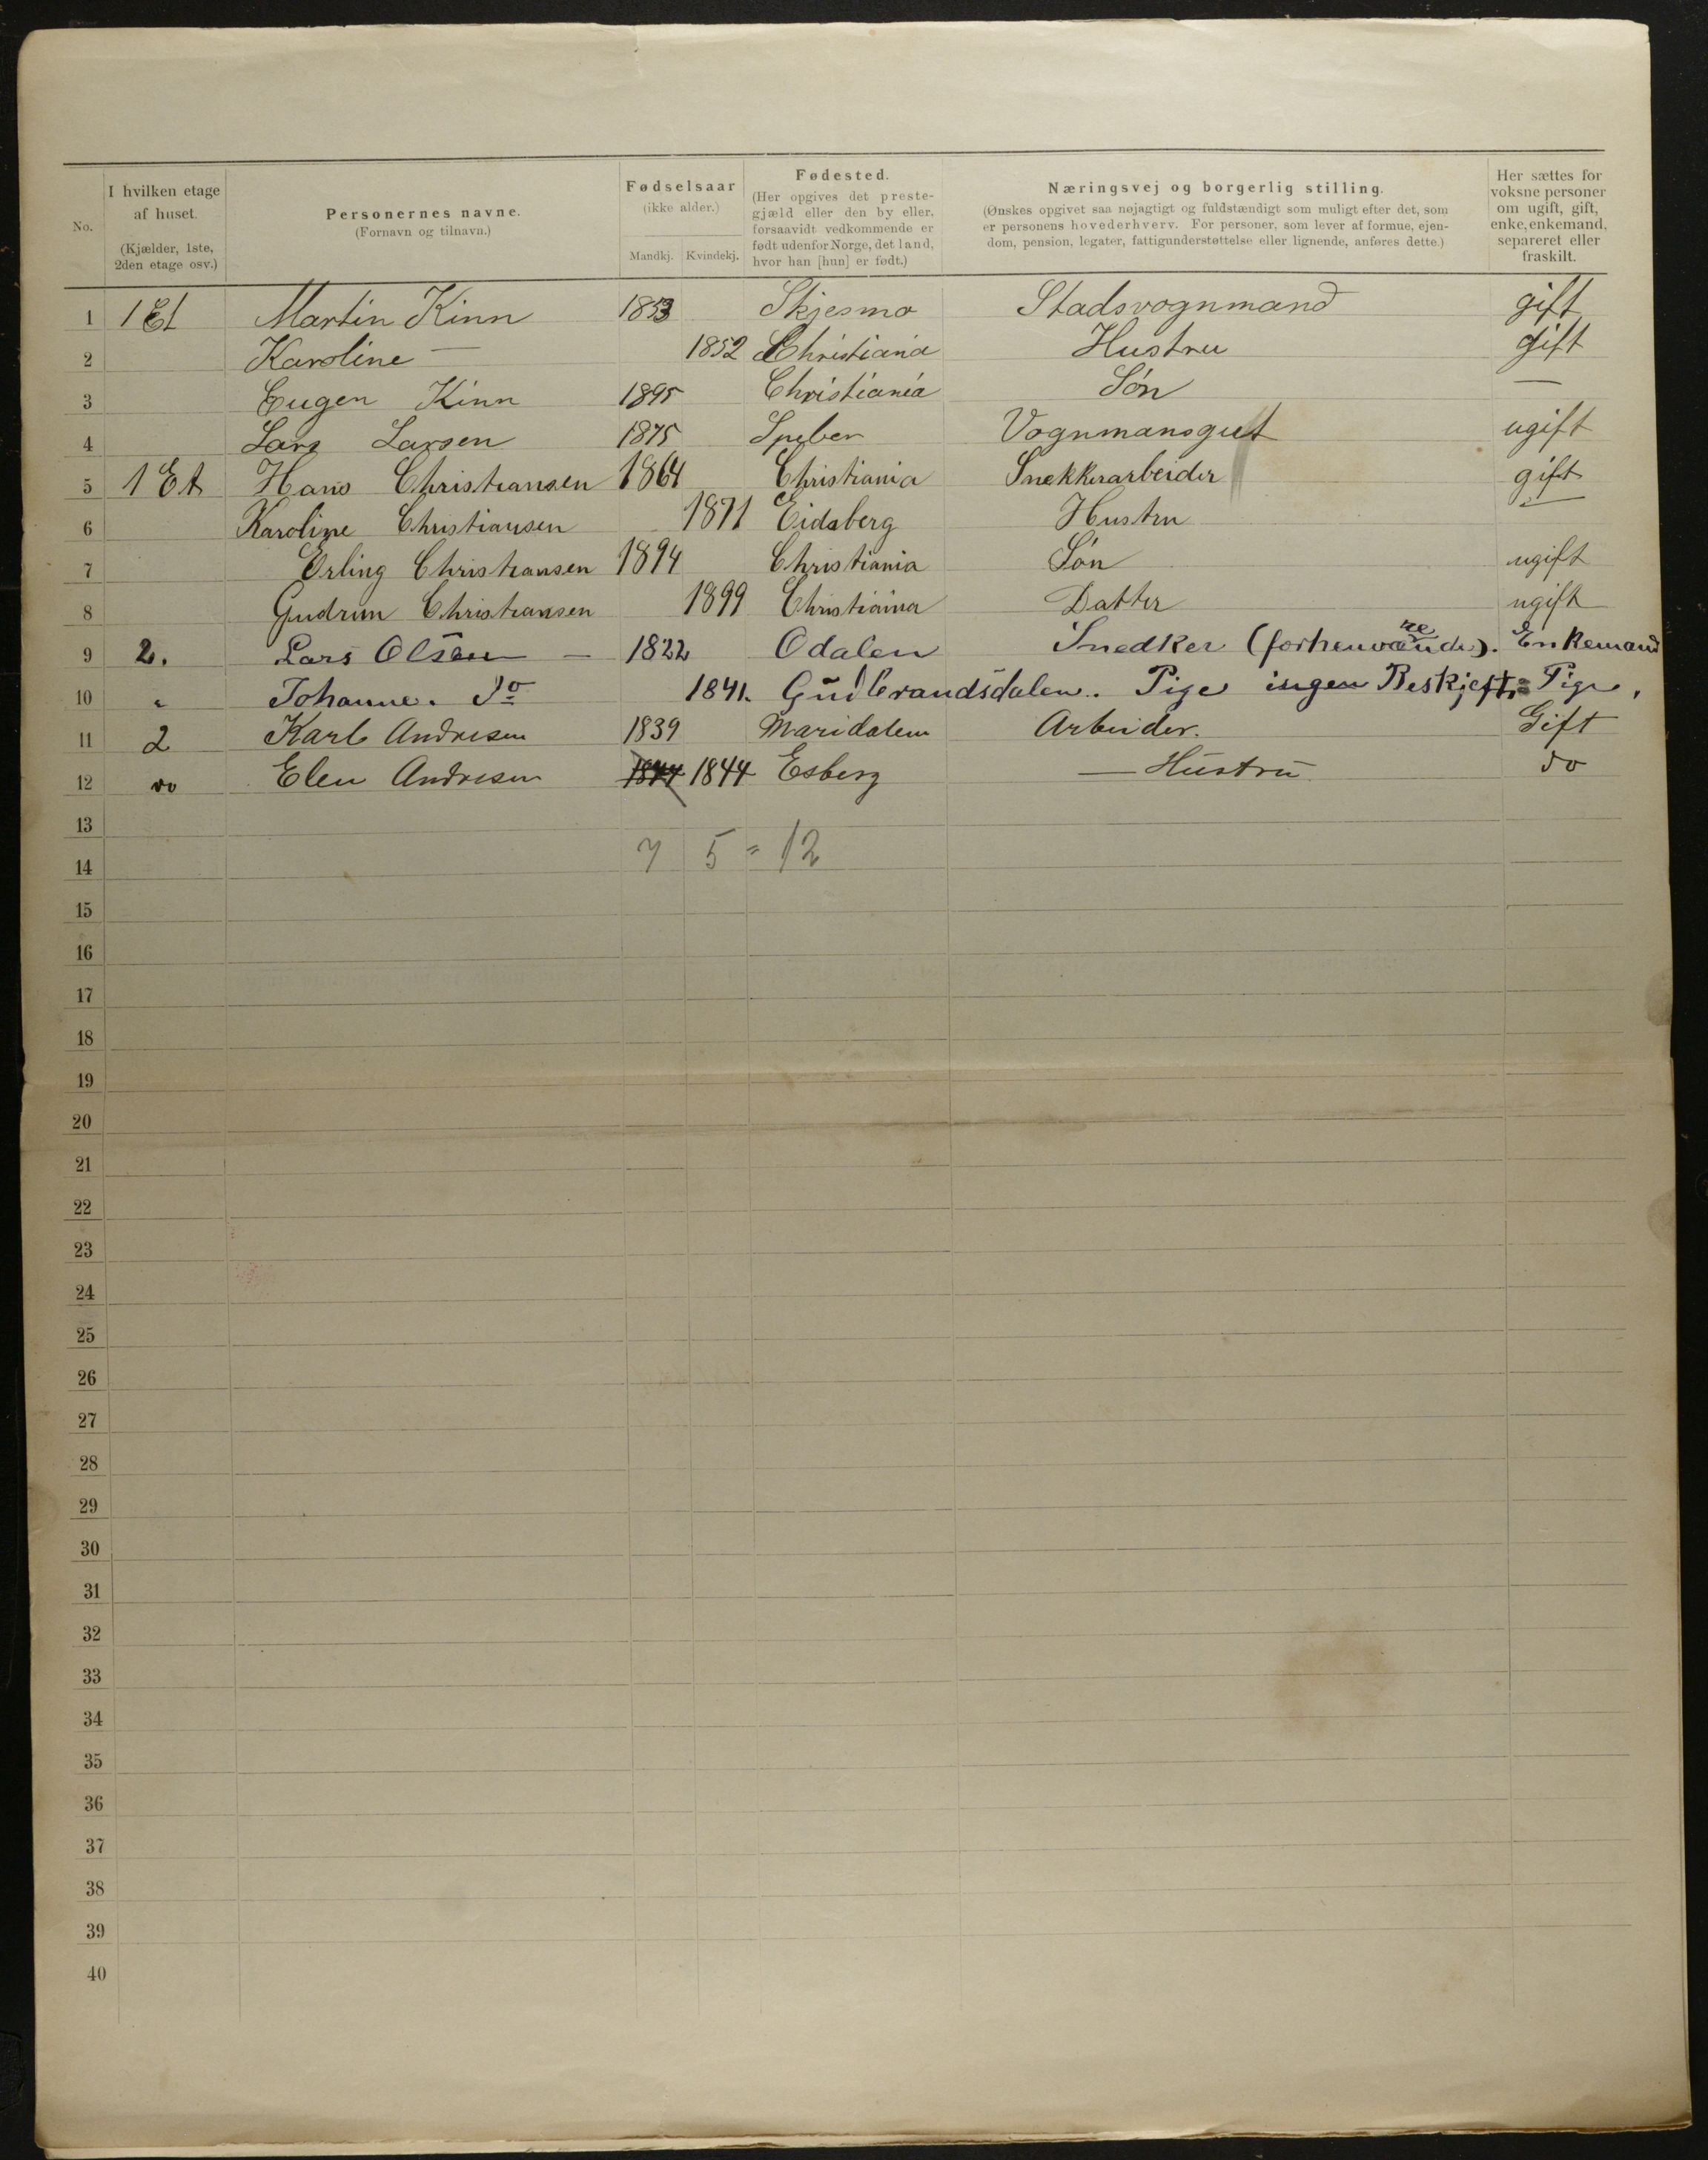 No.
I hvilken etage af huset.
(Kjælder, 1ste, 2den etage osv.)
Personernes navne.
(Fornavn og tilnavn.)
Fødselsaar
(ikke alder.)
Mandkj. Kvindekj.
Fødested.
(Her opgives det preste-
gjæld eller den by eller,
forsaavidt vedkommende er
født udenfor Norge, det land,
hvor han [hun] er født.)
Næringsvej og borgerlig stilling.
(Ønskes opgivet saa nøjagtigt og fuldstændigt som muligt efter det, som
er personens hovederhverv. For personer, som lever af formue, ejen-
dom, pension, legater, fattigunderstøttelse eller lignende, anføres dette.)
Her sættes for
voksne personer
om ugift, gift,
enke, enkemand,
separeret eller
fraskilt.
1 1 Et Martin Kinn 1853 Skjesmo Stadsvognmand gift
2 Karoline — 1852 Christiania Hustru gift
3 Eugen Kinn 1895 Christiania Søn —
4 Lars Larsen 1875 Vognmansgut ugift
5 1 Et Hans Christiansen 1864 Christiania Snekkerarbeider gift
6 Karoline Christiansen 1871 Eidsberg Hustru —
7 Erling Christiansen 1894 Christiania Søn ugift
8 Gudrun Christiansen 1899 Christiania Datter ugift
9 2. Lars Olsen — 1822 Odalen Snedker (forhenværende). Enkemand
10 " Johanne. Do 1841. Gudbrandsdalen. Pige ingen Beskjeft. = Pige,
11 2 Karl Andresen 1839 Maridalen Arbeider. Gift
12 do Elen Andresen 1844 1844 Esberg — Hustru do
13
7 5 = 12
14
15
16
17
18
19
20
21
22
23
24
25
26
27
28
29
30
31
32
33
34
35
36
37
38
39
40